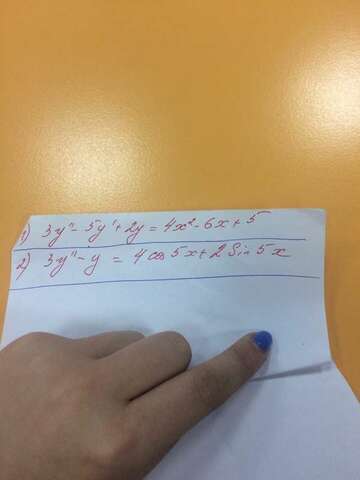 1) 3y'' - 5y' + 2y = 4x² - 6x + 5
2) 3y'' - y = 4 cos 5x + 2 Sin 5x